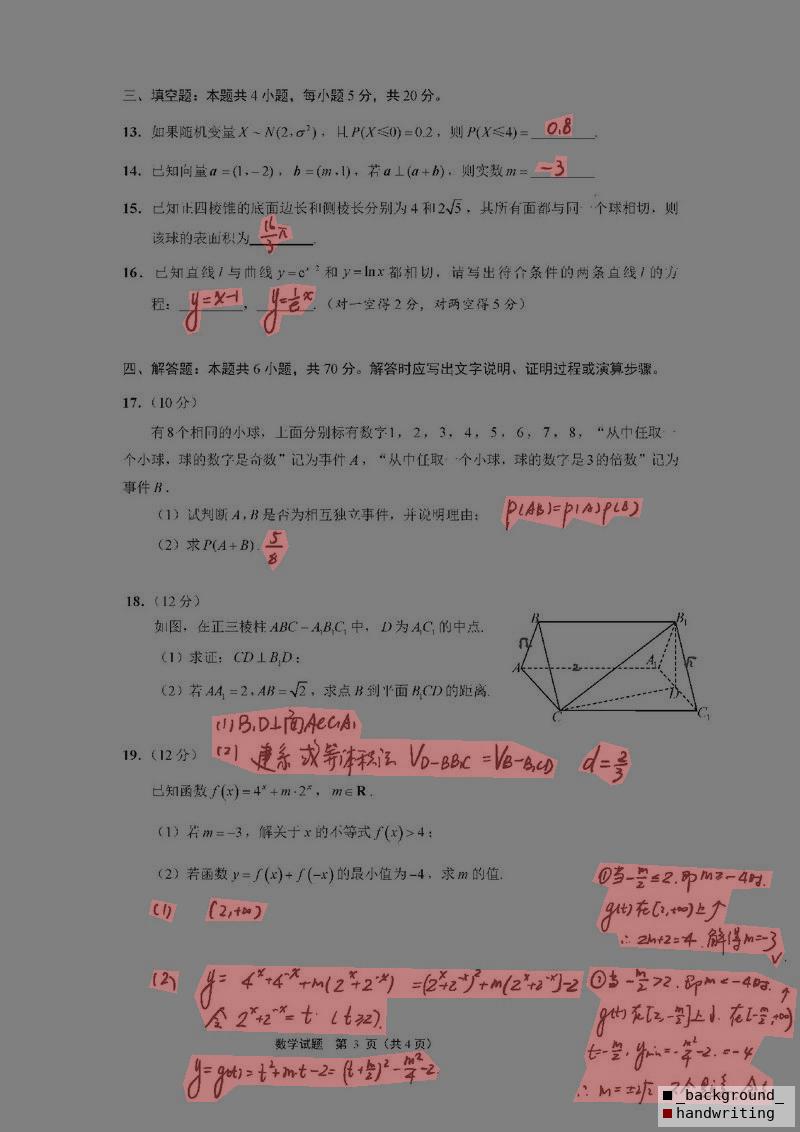 三、填空题：本题共 4 小题，每小题 5 分，共 20 分。
13. 如果随机变量 X ~ N(2, σ²)，且 P(X≤0) = 0.2，则 P(X≤4) = 0.8.
14. 已知向量 a = (1, −2)，b = (m, 1)，若 a⊥(a+b)，则实数 m = −3
15. 已知正四棱锥的底面边长和侧棱长分别为 4 和 2√5，其所有面都与同一个球相切，则
该球的表面积为 16/3 π.
16. 已知直线 l 与曲线 y = e^(x−2) 和 y = ln x 都相切，请写出符合条件的两条直线 l 的方
程：y=x−1，y=1/e x.（对一空得 2 分，对两空得 5 分）
四、解答题：本题共 6 小题，共 70 分。解答时应写出文字说明、证明过程或演算步骤。
17.（10 分）
有 8 个相同的小球，上面分别标有数字 1，2，3，4，5，6，7，8，“从中任取一
个小球，球的数字是奇数”记为事件 A，“从中任取一个小球，球的数字是 3 的倍数”记为
事件 B.
（1）试判断 A, B 是否为相互独立事件，并说明理由； P(AB)=P(A)P(B)
（2）求 P(A+B). 5/8
18.（12 分）
如图，在正三棱柱 ABC − A₁B₁C₁ 中，D 为 A₁C₁ 的中点.
（1）求证：CD⊥B₁D；
（2）若 AA₁ = 2, AB = √2，求点 B 到平面 B₁CD 的距离.
B B₁
√2 √2
A 2 A₁
D
C C₁
(1) B₁D⊥面ACC₁A₁
19.（12 分）
(2) 建系 或 等体积法 V_{D−BB₁C} = V_{B−B₁CD} d=2/3
已知函数 f(x) = 4^x + m·2^x，m∈R.
（1）若 m = −3，解关于 x 的不等式 f(x) > 4；
（2）若函数 y = f(x) + f(−x) 的最小值为 −4，求 m 的值.
(1) (2,+∞)
(2) y= 4^x+4^−x+m(2^x+2^−x) =(2^x+2^−x)²+m(2^x+2^−x)−2
令 2^x+2^−x= t. (t≥2).
数学试题 第 3 页（共 4 页）
y=g(t)=t²+m·t−2=(t+m/2)²−m²/4−2.
①当−m/2≤2.即m≥−4时.
g(t)在[2,+∞)上↑
∴ 2m+2=−4. 解得m=−3 √.
①当−m/2>2.即m<−4时.
g(t)在[2,−m/2]上↓. 在[−m/2,+∞)↑
t=−m/2, y_min=−m²/4−2.=−4
∴ m=±2√2
_background_
handwriting